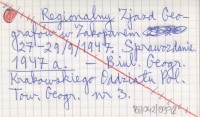 Regionalny Zjazd Geo-
grafów w Zakopanem
27-29/9/1947. Sprawozdanie
1947 a. — Biul. Geogr.
Krakowskiego Oddziału Pol.
Tow. Geogr. nr 3.